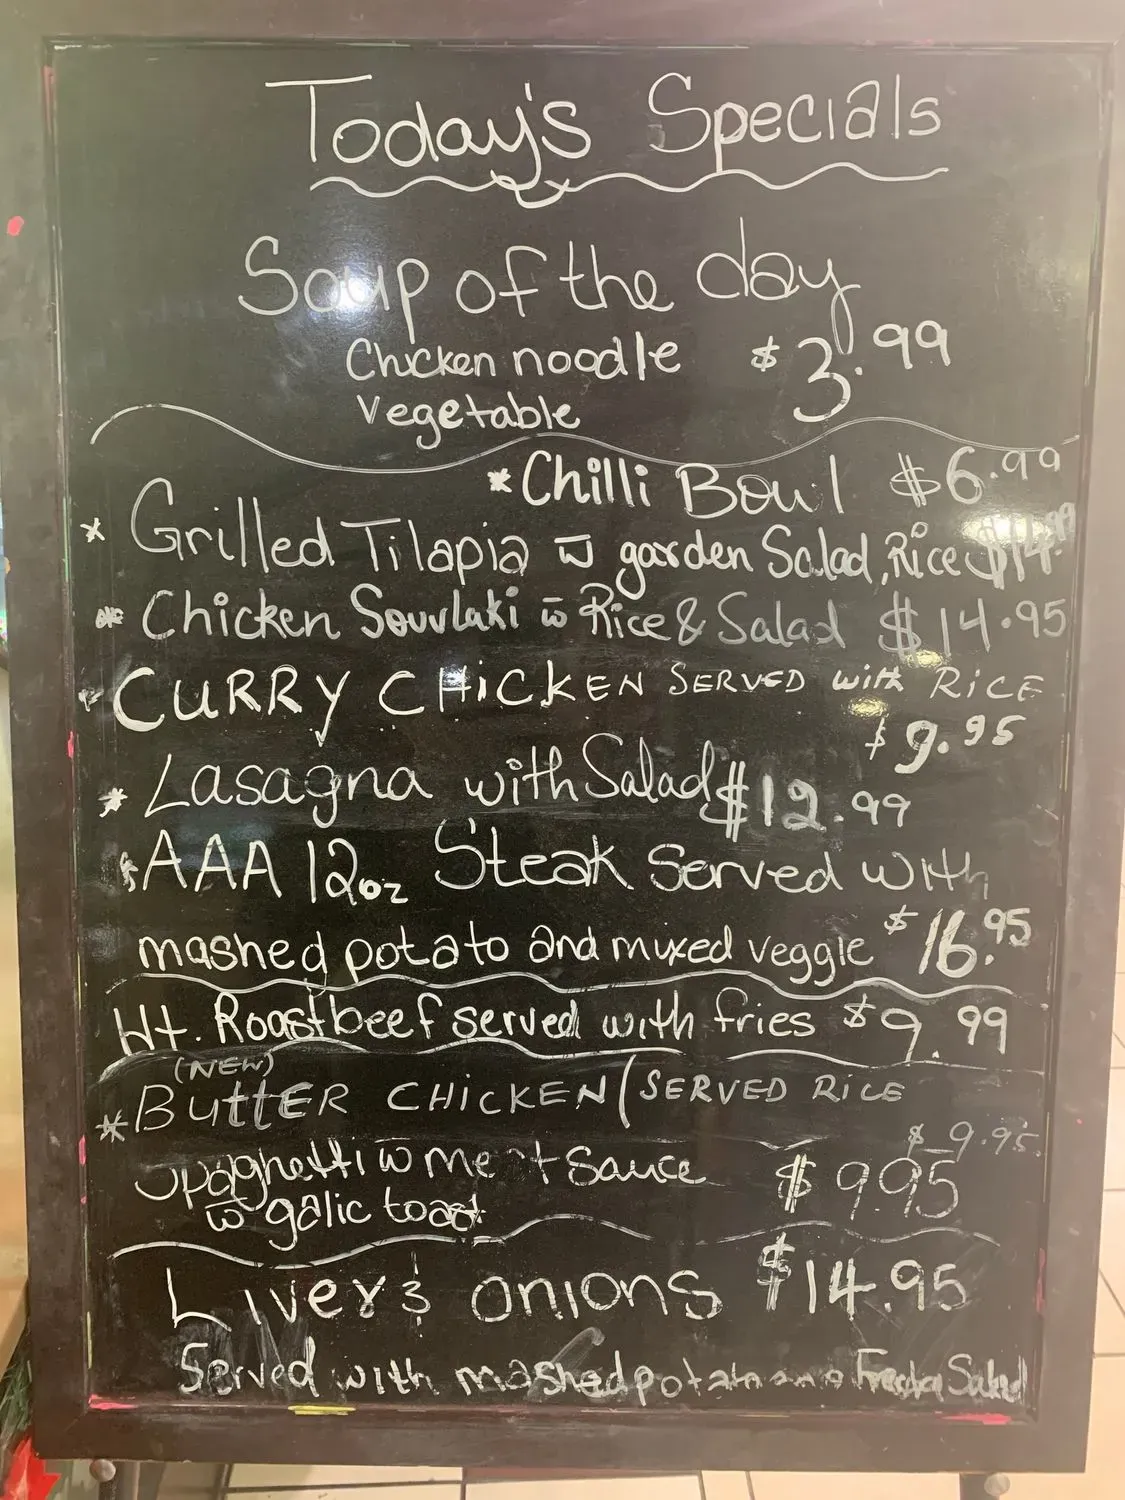 Today's Specials
Soup of the day
Chicken noodle $3.99
Vegetable
*Chilli Bowl $6.99
* Grilled Tilapia w̄ garden Salad, Rice $14.99
* Chicken Souvlaki w̄ Rice & Salad $14.95
* CURRY CHiCKEN SERVED with RiCE
$9.95
* Lasagna with Salad $12.99
* AAA 12oz Steak Served with
mashed potato and mixed veggie $16.95
Ht. Roastbeef served with fries $9.99
(NEW)
* ButtER CHiCKEN (SERVED RiCE
$9.95
Spaghetti w̄ meat Sauce $9.95
w̄ galic toast
Liver & onions $14.95
Served with mashed potato and Salad